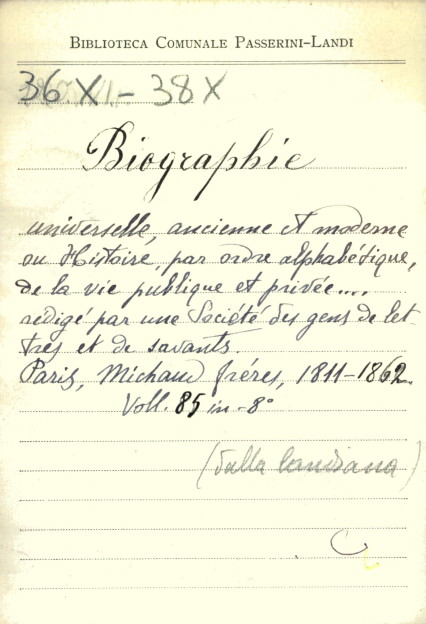 BIBLIOTECA COMUNALE PASSERINI-LANDI
36 XI - 38 X
Biographie
universelle, ancienne et moderne
ou Histoire, par ordre alphabétique,
de la vie publique et privée....
redigé par une Société des gens de let-
tres et de savants.
Paris, Michaud fréres, 1811-1862.
Voll. 85 in-8°
(Dalla Landiana)